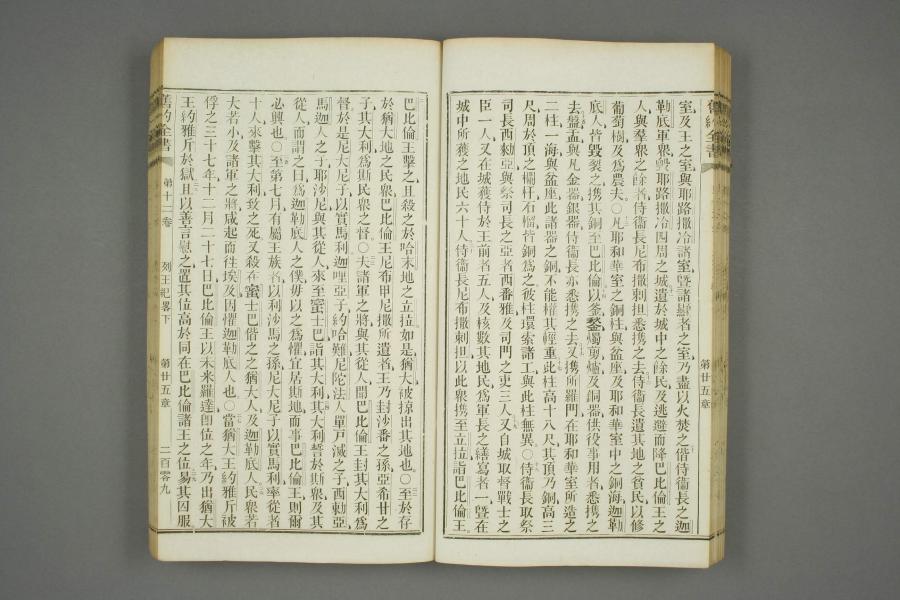 舊約全書
第廿五章
室及王之室與耶路撒冷諸室曁諸
者之室乃盡以火焚之偕侍衞長之迦
勒底軍衆毀耶路撒冷四周之城遺於城中之餘民及逃遯而降巴比倫王之
人與羣衆之餘者侍衞長尼布撒剌担悉携之去侍衞長遺其地之貧民以修
葡萄樹及爲農夫〇凡耶和華室之銅柱與盆座及耶和華室中之銅海迦勒
底人皆毀裂之携其銅至巴比倫以釜鏊燭剪爐及銅器供役事用者悉携之
去盤盂與凡金器銀器侍衞長亦悉携之去又携所羅門在耶和華室所造之
二柱一海與盆座此諸器之銅不能權其輕重此柱高十八尺其頂乃銅高三
尺周於頂之欄杆石榴皆銅爲之彼柱環索諸工與此柱無異〇侍衞長取祭
司長西勑亞與祭司長之亞者西番雅及司門之吏三人又自城取督戰士之
臣一人又在城獲侍於王前者五人及核數其地民爲軍長之繕寫者一曁在
城中所獲之地民六十人侍衞長尼布撒刺担以此衆携至立拉詣巴比倫王
巴比倫王擊之且殺之於哈末地之立拉如是猶大被掠出其地也〇至於存
於猶大地之民衆巴比倫王尼布甲尼撒所遺者王乃封沙番之孫亞希廿之
子其大利爲斯民衆之督〇夫諸軍之將與其從人聞巴比倫王封其大利爲
督於是尼大尼子以實馬利迦哩亞子約哈難尼陀法人單戶滅之子西勑亞
馬迦人之子耶沙尼與其從人來至蜜士巴詣其大利其大利誓於斯衆及其
從人而謂之曰爲迦勒底人之僕毋以之爲懼宜居斯地而事巴比倫王則爾
必興也〇至第七月有屬王族者以利沙馬之孫尼大尼子以實馬利率從者
十人來擊其大利致之死又殺在蜜士巴偕之之猶大人及迦勒底人民衆若
大若小及諸軍之將咸起而往埃及因懼迦勒底人也〇當猶大王約雅斤被
俘之三十七年十二月二十七日巴比倫王以未米羅達卽位之年乃出猶大
王約雅斤於獄且以善言慰之置其位高於同在巴比倫諸王之位易其囚服
舊約全書
第十二卷
列王紀畧下
第廿五章
二百零九